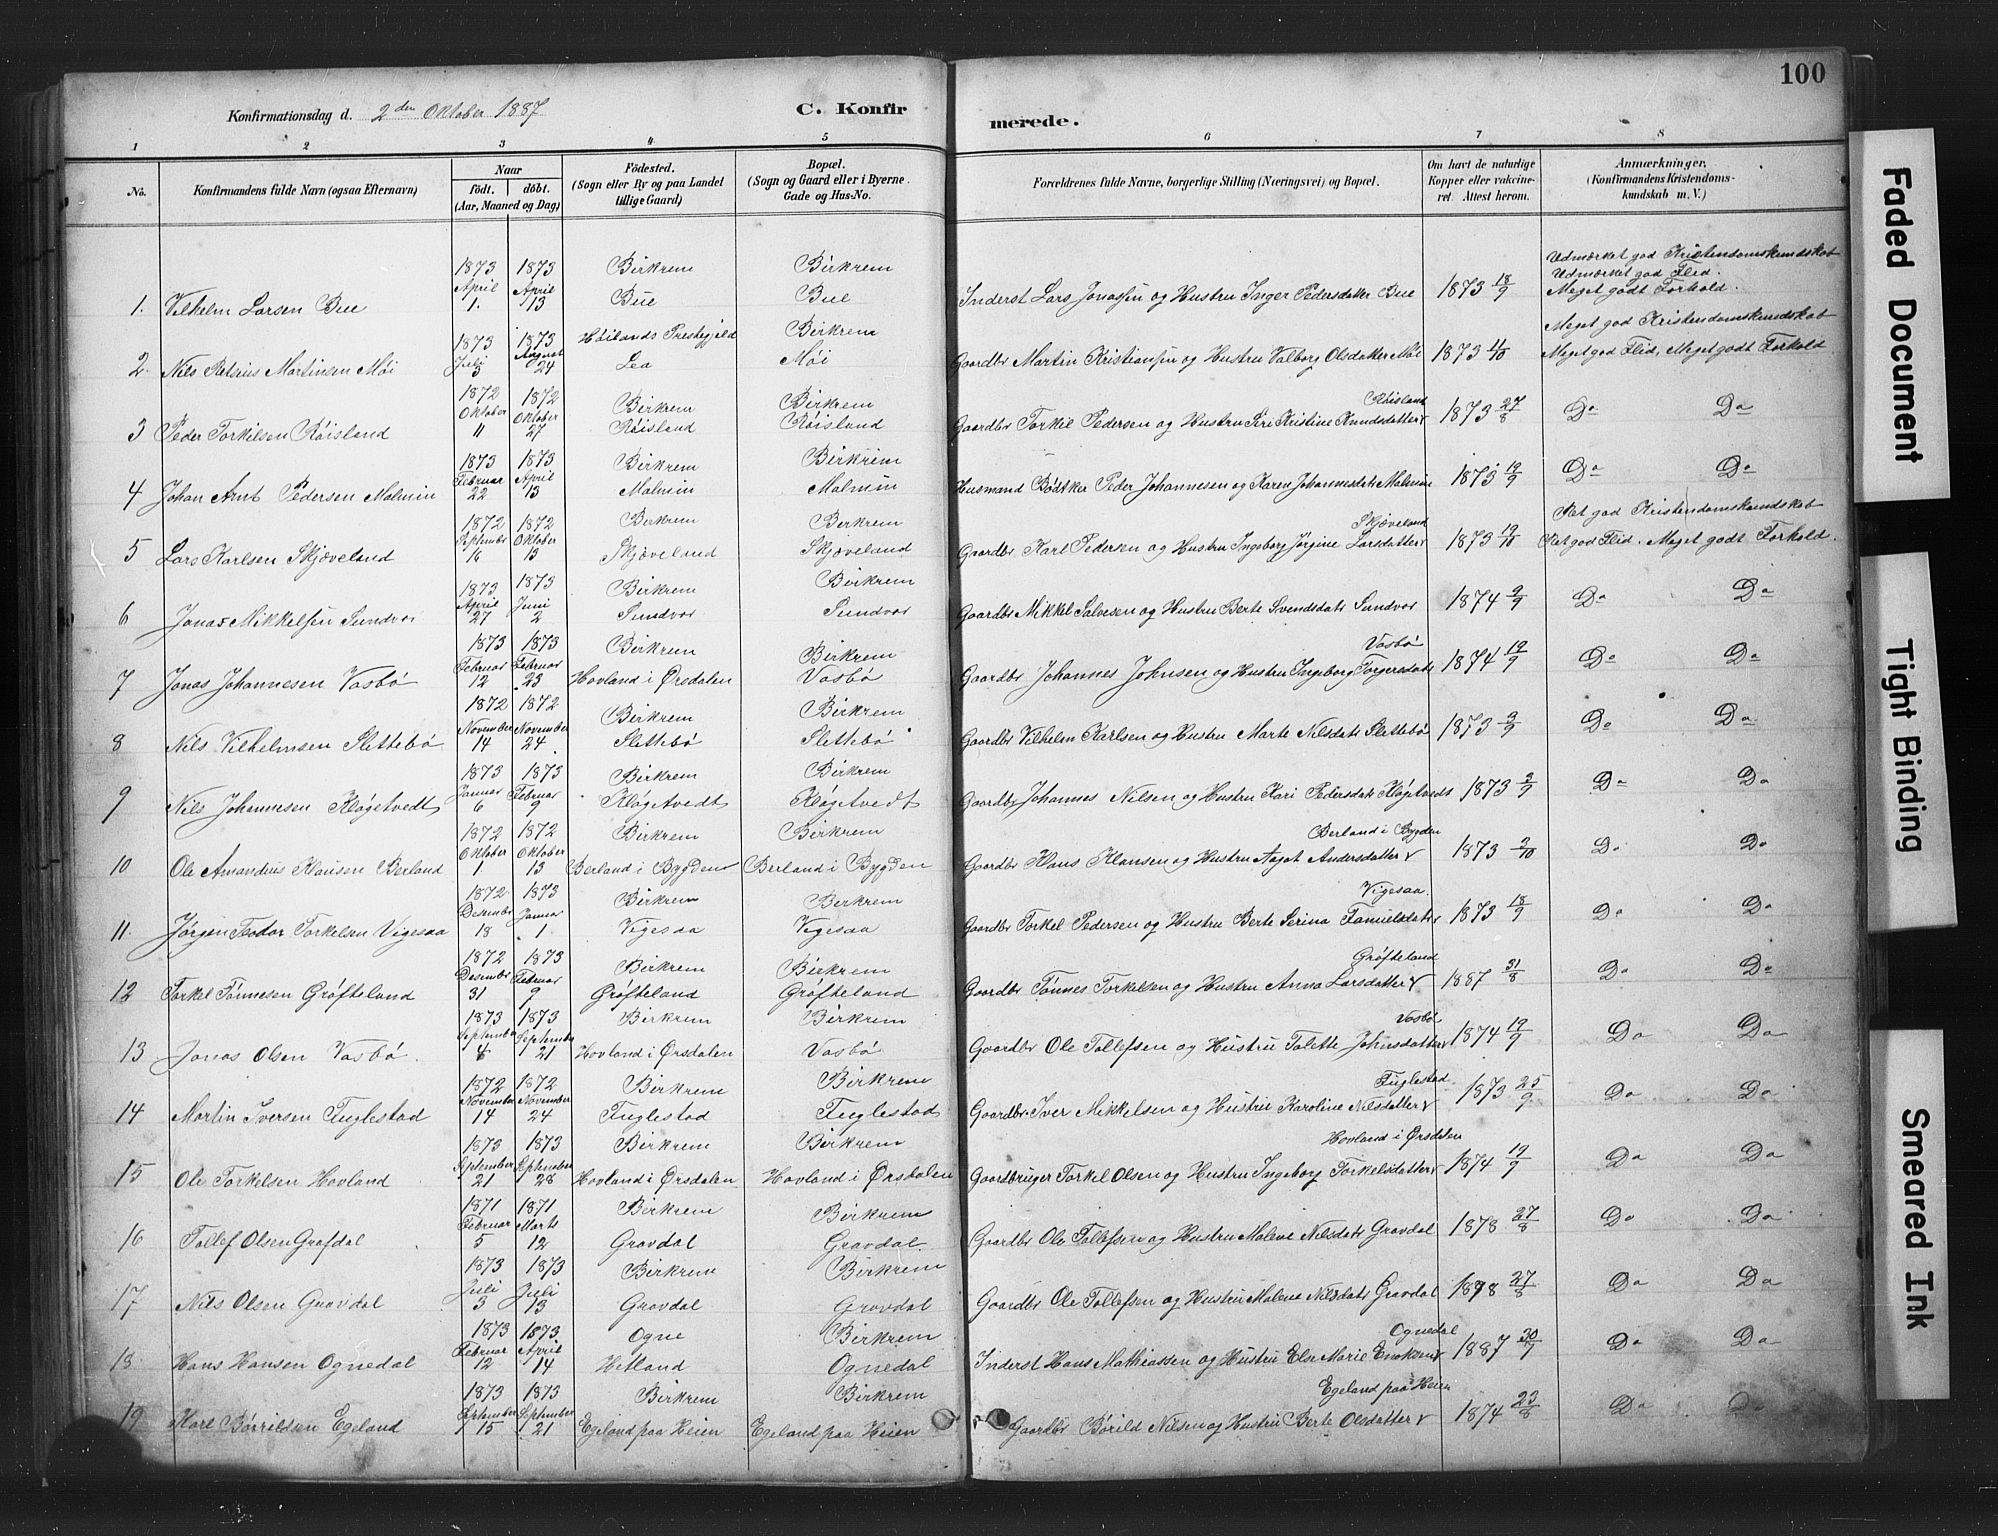 100
Konfirmationsdag d. 2den Oktober 1887
C. Konfirmerede.
1 2 3 4 5 6 7 8
No. Konfirmandens fulde Navn (ogsaa Efternavn) Naar født. døbt. (Aar, Maaned og Dag) Fødested. (Sogn eller By og paa Landet tillige Gaard) Bopæl. (Sogn og Gaard eller i Byerne Gade og Hus-No. Forældrenes fulde Navne, borgerlige Stilling (Næringsvei) og Bopæl. Om havt de naturlige Kopper eller vakcineret. Attest herom. Anmærkninger. (Konfirmandens Kristendomskundskab m. V.)
1. Vilhelm Larsen Bue 1873 April 1. 1873 April 13 Birkrem Bue Birkrem Bue Inderst Lars Jonassen og Hustru Inger Pedersdatter Bue 1873 18/9 Udmærket god Kristendomskundskab Udmærket god Flid. Meget godt Forhold.
2. Nils Petrius Martinsen Møi 1873 Juli 3 1873 August 24 Høilands Prestegjeld Lea Birkrem Møi Gaardbr Martin Kristiansen og Hustru Valborg Olsdatter Møi 1873 4/10 Meget god Kristendomskundskab Meget god Flid, Meget godt Forhold
3 Peder Torkilsen Røisland 1872 Oktober 11 1872 Oktober 27 Birkrem Røisland Birkrem Røisland Gaardbr Torkil Pedersen og Hustru Siri Kristine Knudsdatter Røisland 1873 27/8 Do Do
4 Johan Arnt Pedersen Malmin 1873 Februar 22 1873 April 13 Birkrem Malmin Birkrem Malmin Husmand Bødtker Peder Johannesen og Karen Johannesdatr Malmin 1873 19/9 Do Do
5 Lars Karlsen Skjæveland 1872 September 16 1872 Oktober 13 Birkrem Skjæveland Birkrem Skjæveland Gaardbr Karl Pedersen og Hustru Ingeborg Jørgine Larsdatter Skjæveland 1873 19/10 Ret god Kristendomskundskab Ret god Flid. Meget godt Forhold.
6 Jonas Mikkelsen Sundvor 1873 April 27 1873 Juni 2 Birkrem Sundvor Birkrem Sundvor Gaardbr Mikkel Salvesen og Hustru Berte Svendsdatr Sundvor 1874 2/9 Do Do
7 Jonas Johannesen Vasbø 1873 Februar 12 1873 Februar 23 Birkrem Hovland i Ørsdalen Birkrem Vasbø Gaardbr Johannes Johnsen og Hustru Ingeborg Torgersdatr Vasbø 1874 19/9 Do Do
8 Nils Vilhelmsen Slettebø 1872 November 14 1872 November 24 Birkrem Slettebø Birkrem Slettebø Gaardbr Vilhelm Karlsen og Hustru Marte Nilsdatr Slettebø 1873 3/9 Do Do
9 Nils Johannesen Kløgetvedt 1873 Januar 6 1873 Februar 9 Birkrem Kløgetvedt Birkrem Kløgetvedt Gaardbr Johannes Nilsen og Hustru Kari Pedersdatr Kløgetvedt 1873 2/9 Do Do
10 Ole Amandus Klausen Berland 1872 Oktober 1. 1872 Oktober 13 Birkrem Berland i Bygden Birkrem Berland i Bygden Gaardbr Klaus Klausen og Hustru Aaget Andersdatter Berland i Bygden 1873 2/10 Do Do
11. Jørgen Teodor Torkelsen Vigesaa 1872 Desember 18 1873 Januar 1 Birkrem Vigesaa Birkrem Vigesaa Gaardbr Torkel Pedersen og Hustru Berte Serina Tanielsdatr Vigesaa 1873 18/9 Do Do
12 Torkel Tønnesen Grøfteland 1872 Desember 31 1873 Februar 9 Birkrem Grøfteland Birkrem Grøfteland Gaardbr Tønnes Torkelsen og Hustru Anna Larsdatter Grøfteland 1887 31/8 Do Do
13 Jonas Olsen Vasbø 1873 September 1873 September 21 Birkrem Hovland i Ørsdalen Birkrem Vasbø Gaardbr Ole Tollefsen og Hustru Tolette Johnsdatter Vasbø 1874 19/9 Do Do
14 Martin Iversen Fuglestad 1872 November 14 1872 November 24 Birkrem Fuglestad Birkrem Fuglestad Gaardbr. Iver Mikkelsen og Hustru Karoline Nilsdatter Fuglestad 1873 25/9 Do Do
15 Ole Torkelsen Hovland 1873 September 21 1873 September 28 Birkrem Hovland i Ørsdalen Birkrem Hovland i Ørsdalen Gaardbruger Torkel Olsen og Hustru Ingeborg Torkelsdatter Hovland i Ørsdalen 1874 19/9 Do Do
16 Tollef Olsen Grafdal 1871 Februar 5 1871 Marts 12 Birkrem Gravdal Birkrem Gravdal. Gaardbr Ole Tollefsen og Hustru Malene Nilsdatr Gravdal 1878 27/8 Do Do
17 Nils Olsen Gravdal 1873 Juli 3 1873 Juli 13 Birkrem Gravdal Birkrem Gravdal Gaardbr Ole Tollefsen og Hustru Malene Nilsdatr Gravdal 1878 27/8 Do Do
18 Hans Hansen Ognedal 1873 Februar 12 1873 April 14 Ogne Hetland Birkrem Ognedal Inderst Hans Mathiassen og Hustru Else Marie Ognedal 1887 30/7 Do Do
19 Karl Børrildsen Egeland 1873 September 15 1873 September 21 Birkrem Egeland paa Heien Birkrem Egeland paa Heien Gaardbr Børild Nilsen og Hustru Berte Olsdatter Egeland paa Heien 1874 23/8 Do Do
Faded Document
Tight Binding
Smeared Ink